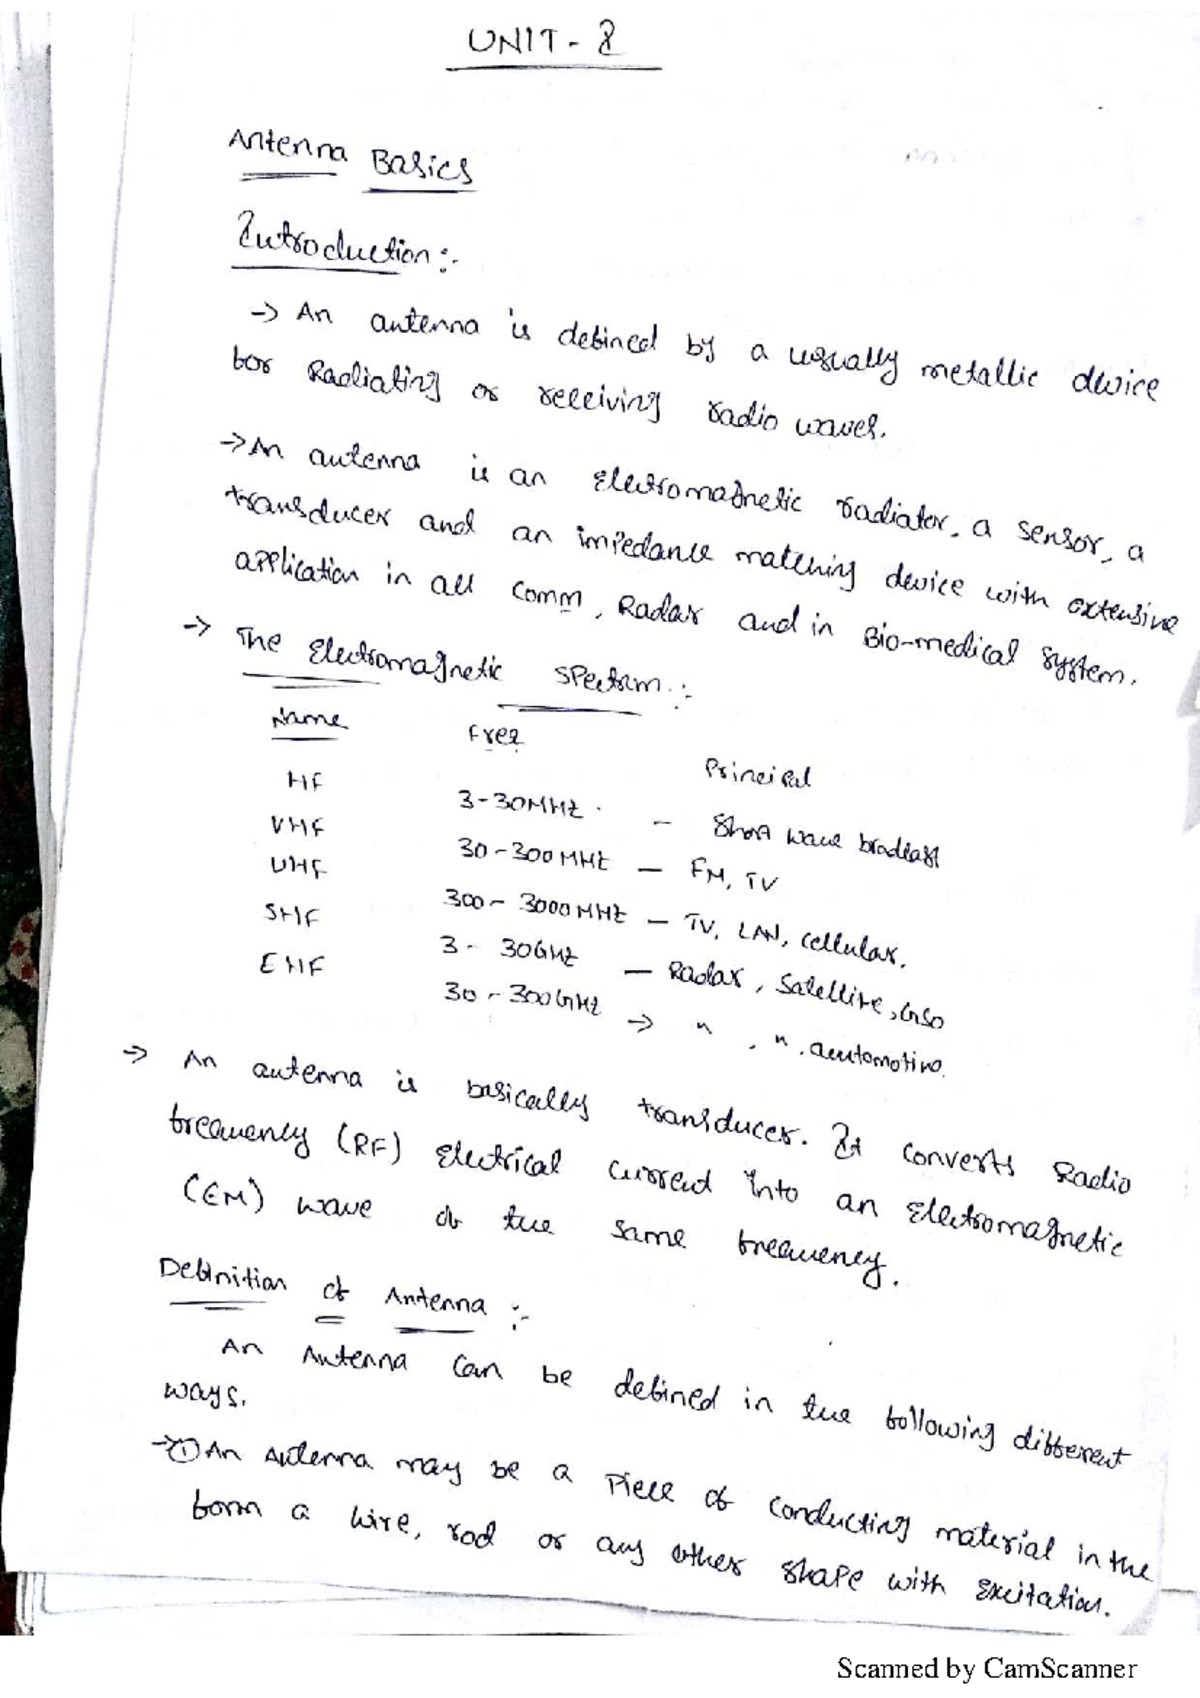 UNIT - I
Antenna Basics
Introduction :-
→ An antenna is defined by a usually metallic device
for Radiating or receiving radio waves.
→ An antenna is an Electromagnetic radiator, a sensor, a
transducer and an impedance matching device with extensive
application in all Comm, Radar and in Bio-medical system.
→ The Electromagnetic Spectrm :-
Name Freq Principal
HF 3-30MHz - Short wave brodcast
VHF 30-300MHz - FM, TV
UHF 300-3000MHz - TV, LAN, cellular.
SHF 3-30GHz - Radar, Satellite, GSO
EHF 30-300GHz → " , " , automotive.
→ An antenna is basically transducer. It converts Radio
frequency (RF) Electrical current into an Electromagnetic
(EM) wave of the same frequency.
Definition of Antenna :-
An Antenna can be defined in the following different
ways.
→① An Antenna may be a Piece of conducting material in the
form a wire, rod or any other shape with excitation.
Scanned by CamScanner